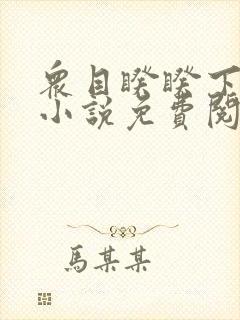 眾目睽睽下
小說免費閱
馬某某